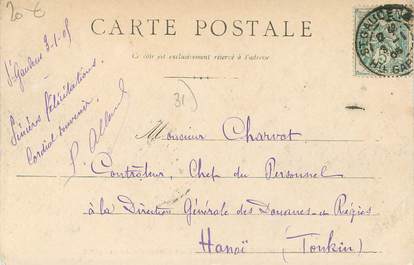 20 €
CARTE POSTALE
Ce côté est exclusivement réservé à l'adresse
St Gaudens 3-1-05
Sincères félicitations.
Cordial souvenir.
31)
ST GAUDENS
Monsieur Charvot
Contrôleur, Chef du Personnel
à la Direction Générale des Douanes et Régies
Hanoï (Tonkin)